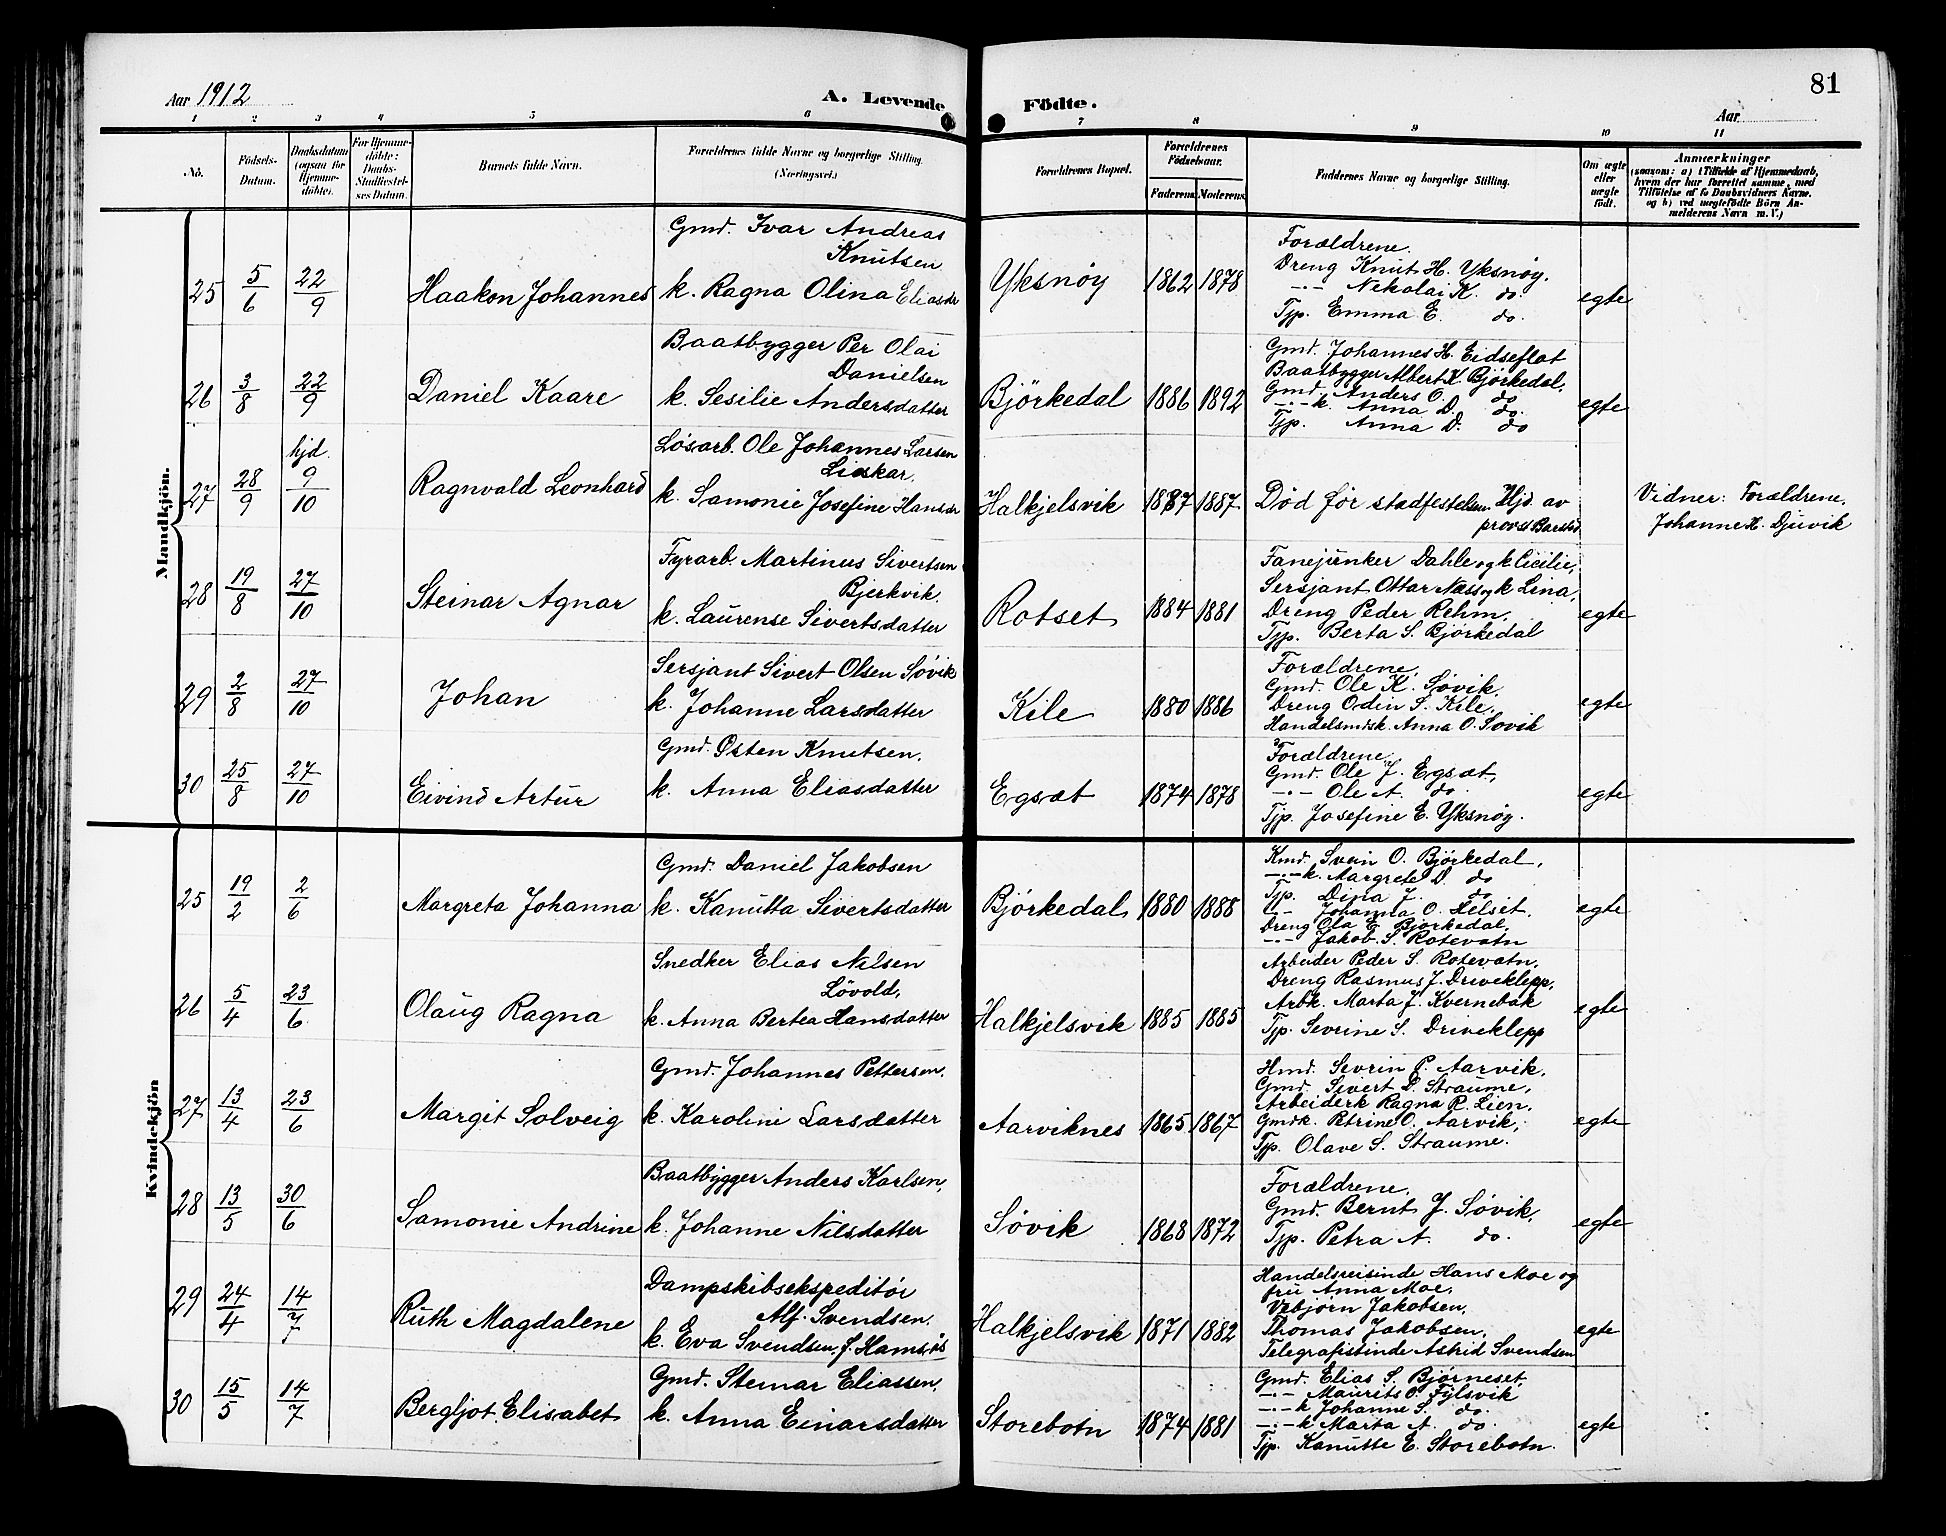 81
Aar 1912
A. Levende Födte.
Aar
1 2 3 4 5 6 7 8 9 10 11
No.
Födsels-Datum.
Daabsdatum (ogsaa for Hjemmedöbte).
For Hjemmedöbte: Daabs-Stadfæstelses Datum.
Barnets fulde Navn.
Forældrenes fulde Navne og borgerlige Stilling. (Næringsvei.)
Forældrenes Bopæl.
Forældrenes Födselsaar.
Faderens Moderens
Faddernes Navne og borgerlige Stilling.
Om ægte eller uægte födt.
Anmærkninger
(saasom: a) i Tilfælde af Hjemmedaab,
hvem der har forrettet samme, med
Tilföielse af to Daabsvidners Navne.
og b) ved uægtefödte Börn An-
melderens Navn m. V.)
Mandkjön.
25 5/6 22/9 Haakon Johannes
Gmd. Ivar Andreas
Knutsen
k. Ragna Olina Eliasdr
Yksnøy 1862 1878
Forældrene.
Dreng Knut H. Yksnøy.
-"- Nekolai K. do.
Tjp. Emma E. do.
egte
26 3/8 22/9 Daniel Kaare
Baatbygger Per Olai
Danielsen
k. Sesilie Andersdatter
Bjørkedal 1886 1892
Gmd. Johannes H. Eidseflot
Baatbygger Albert K. Bjørkedal.
Gmd. Anders O. do
-"- k. Anna D. do.
Tjp. Anna D. do
egte
27 28/9 hjd. 9/10 Ragnvald Leonhard
Løsarb. Ole Johannes Larsen
Liaskar.
k. Samonie Josefine Hansdr
Halkjelsvik 1887 1887
Død før stadfestelsen. Hjd. av
provst Barstad
Vidner: Forældrene.
Johanne H. Djuvik
28 19/8 27/10 Steinar Agnar
Fyrarb. Martinus Sivertsen
Bjerkvik.
k. Laurense Sivertsdatter
Rotset 1884 1881
Fanejunker Dahle og k Cicilie,
Sersjant Ottar Næss og k Lina,
Dreng Peder Rehm.
Tjp. Berta S. Bjørkedal
egte
29 2/8 27/10 Johan
Sersjant Sivert Olsen Søvik
k. Johanne Larsdatter
Kile 1880 1886
Forældrene,
Gmd. Ole K. Søvik.
Dreng Odin S. Kile.
Handelsmdsk. Anna O. Søvik
egte
30 25/8 27/10 Eivind Artur
Gmd. Østen Knutsen.
k. Anna Eliasdatter
Egsæt 1874 1878
Forældrene,
Gmd. Ole J. Egsæt,
-"- Ole A. do.
Tjp. Josefine E. Yksnøy.
egte
Kvindekjön
25 19/2 2/6 Margreta Johanna
Gmd. Daniel Jakobsen
k. Kanutta Sivertsdatter
Bjørkedal 1880 1888
Kmd. Svein O. Bjørkedal,
-"- k. Margrete D. do
Tjp. Dina J. do
-"- Johanna O. Helset.
Dreng Ola E. Bjørkedal,
-"- Jakob S. Rotevatn
egte
26 5/4 23/6 Olaug Ragna
Snedker Elias Nilsen
Løvold,
k. Anna Bertea Hansdatter
Halkjelsvik 1885 1885
Arbeider Peder S. Rotevatn,
Dreng Rasmus J. Driveklepp,
Arbk. Marta J. Kvernebak
Tjp. Sevrine S. Driveklepp
egte
27 13/4 23/6 Margit Solveig
Gmd. Johannes Pettersen.
k. Karoline Larsdatter
Aarviknes 1865 1867
Hmd. Sevrin P. Aarvik.
Gmd. Sivert D. Straume,
Arbeiderk Ragna R. Lien.
Gmdk. Petrine O. Aarvik,
Tjp. Olave S. Straume.
egte
28 13/5 30/6 Samonie Andrine
Baatbygger Anders Karlsen,
k. Johanne Nilsdatter
Søvik 1868 1872
Forældrene,
Gmd. Bernt J. Søvik,
Tjp. Petra A. do.
egte
29 24/4 14/7 Ruth Magdalene
Dampskibsekspeditør
Alf. Svendsen.
k. Eva Svendsen, f. Hamsås
Halkjelsvik 1871 1882
Handelsreisinde Hans Moe og
fru Anna Moe,
Vebjørn Jakobsen,
Thomas Jakobsen,
Telegrafistinde Astrid Svendsen
egte
30 15/5 14/7 Bergljot Elisabet
Gmd. Steinar Eliassen.
k. Anna Einarsdatter
Storebotn 1874 1881
Gmd. Elias S. Bjørneset,
-"- Maurits O. Fylsvik
-"- k Johanne S. do.
-"- k Marta A. do.
Tjp. Kanutte E. Storebotn.
egte